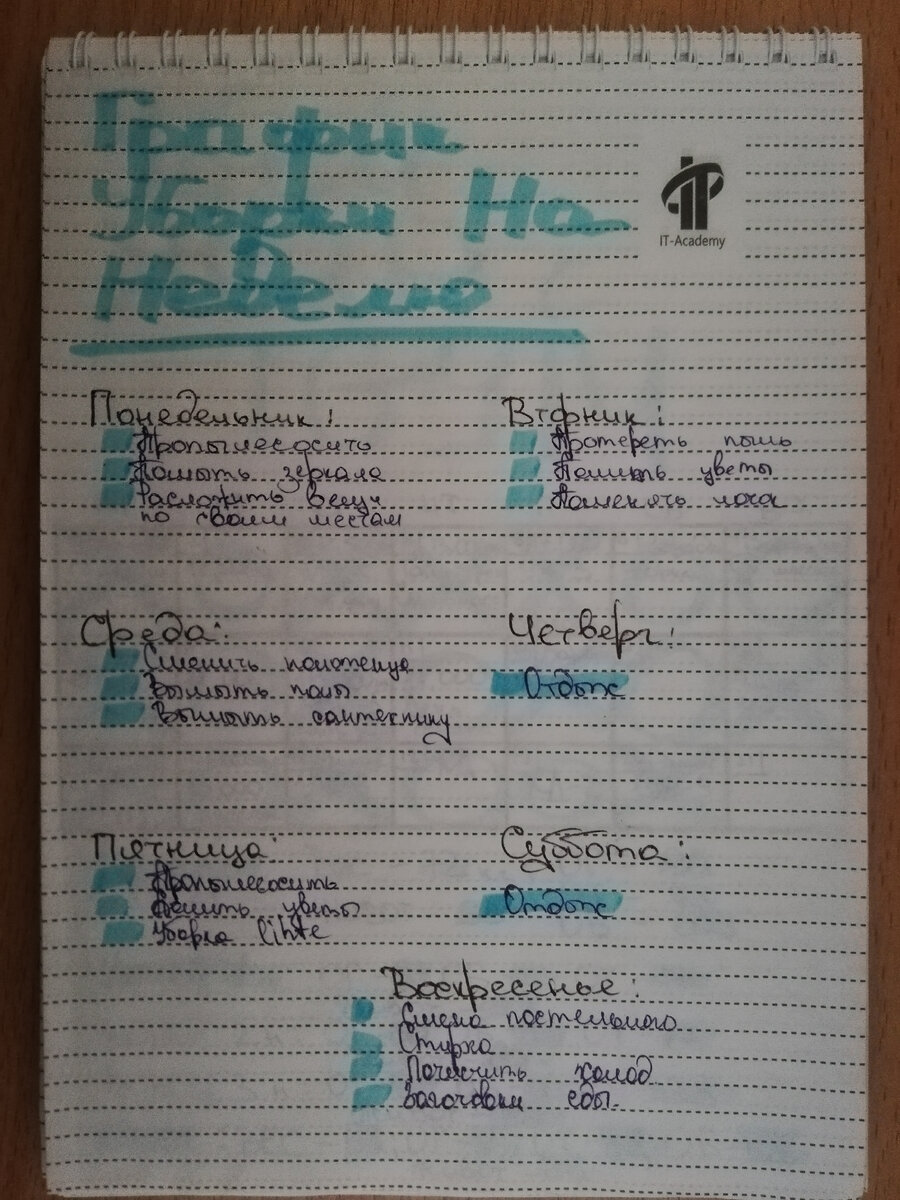 График
Уборки На
Неделю
IT-Academy
Понедельник:
Пропылесосить
Помыть зеркала
Расложить вещи
по своим местам
Вторник:
Протереть пыль
Полить цветы
Поменять
Среда:
Сменить полотенца
Вымыть полы
Вымыть сантехнику
Четверг:
Отдых
Пятница:
Пропылесосить
Полить цветы
Уборка lihte
Суббота:
Отдых
Воскресенье:
Смена постельного
Стирка
Почистить холод
Заготовки еды.